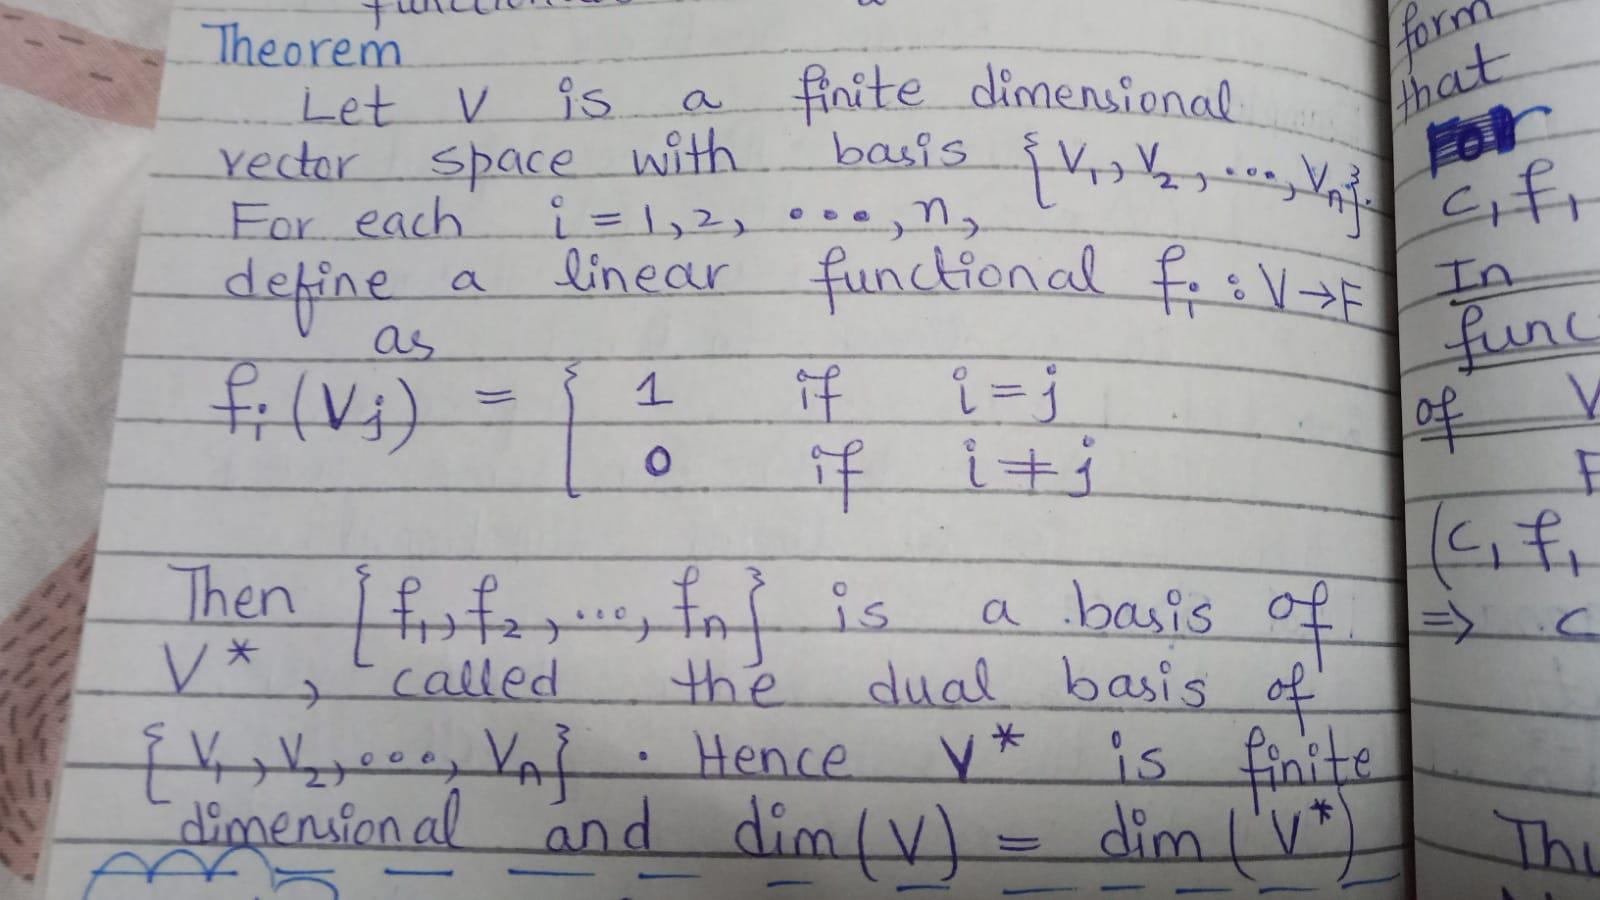 Theorem
Let V is a finite dimensional
vector space with basis {V₁, V₂, ..., Vₙ}.
For each i = 1, 2, ..., n,
define a linear functional fᵢ : V → F
as
fᵢ(Vⱼ) = { 1 if i = j
0 if i ≠ j
Then {f₁, f₂, ..., fₙ} is a basis of
V*, called the dual basis of
{V₁, V₂, ..., Vₙ}. Hence V* is finite
dimensional and dim(V) = dim(V*)
form
that
c₁f₁
In
func
of V
F
(c₁f₁
⇒ c
Thu